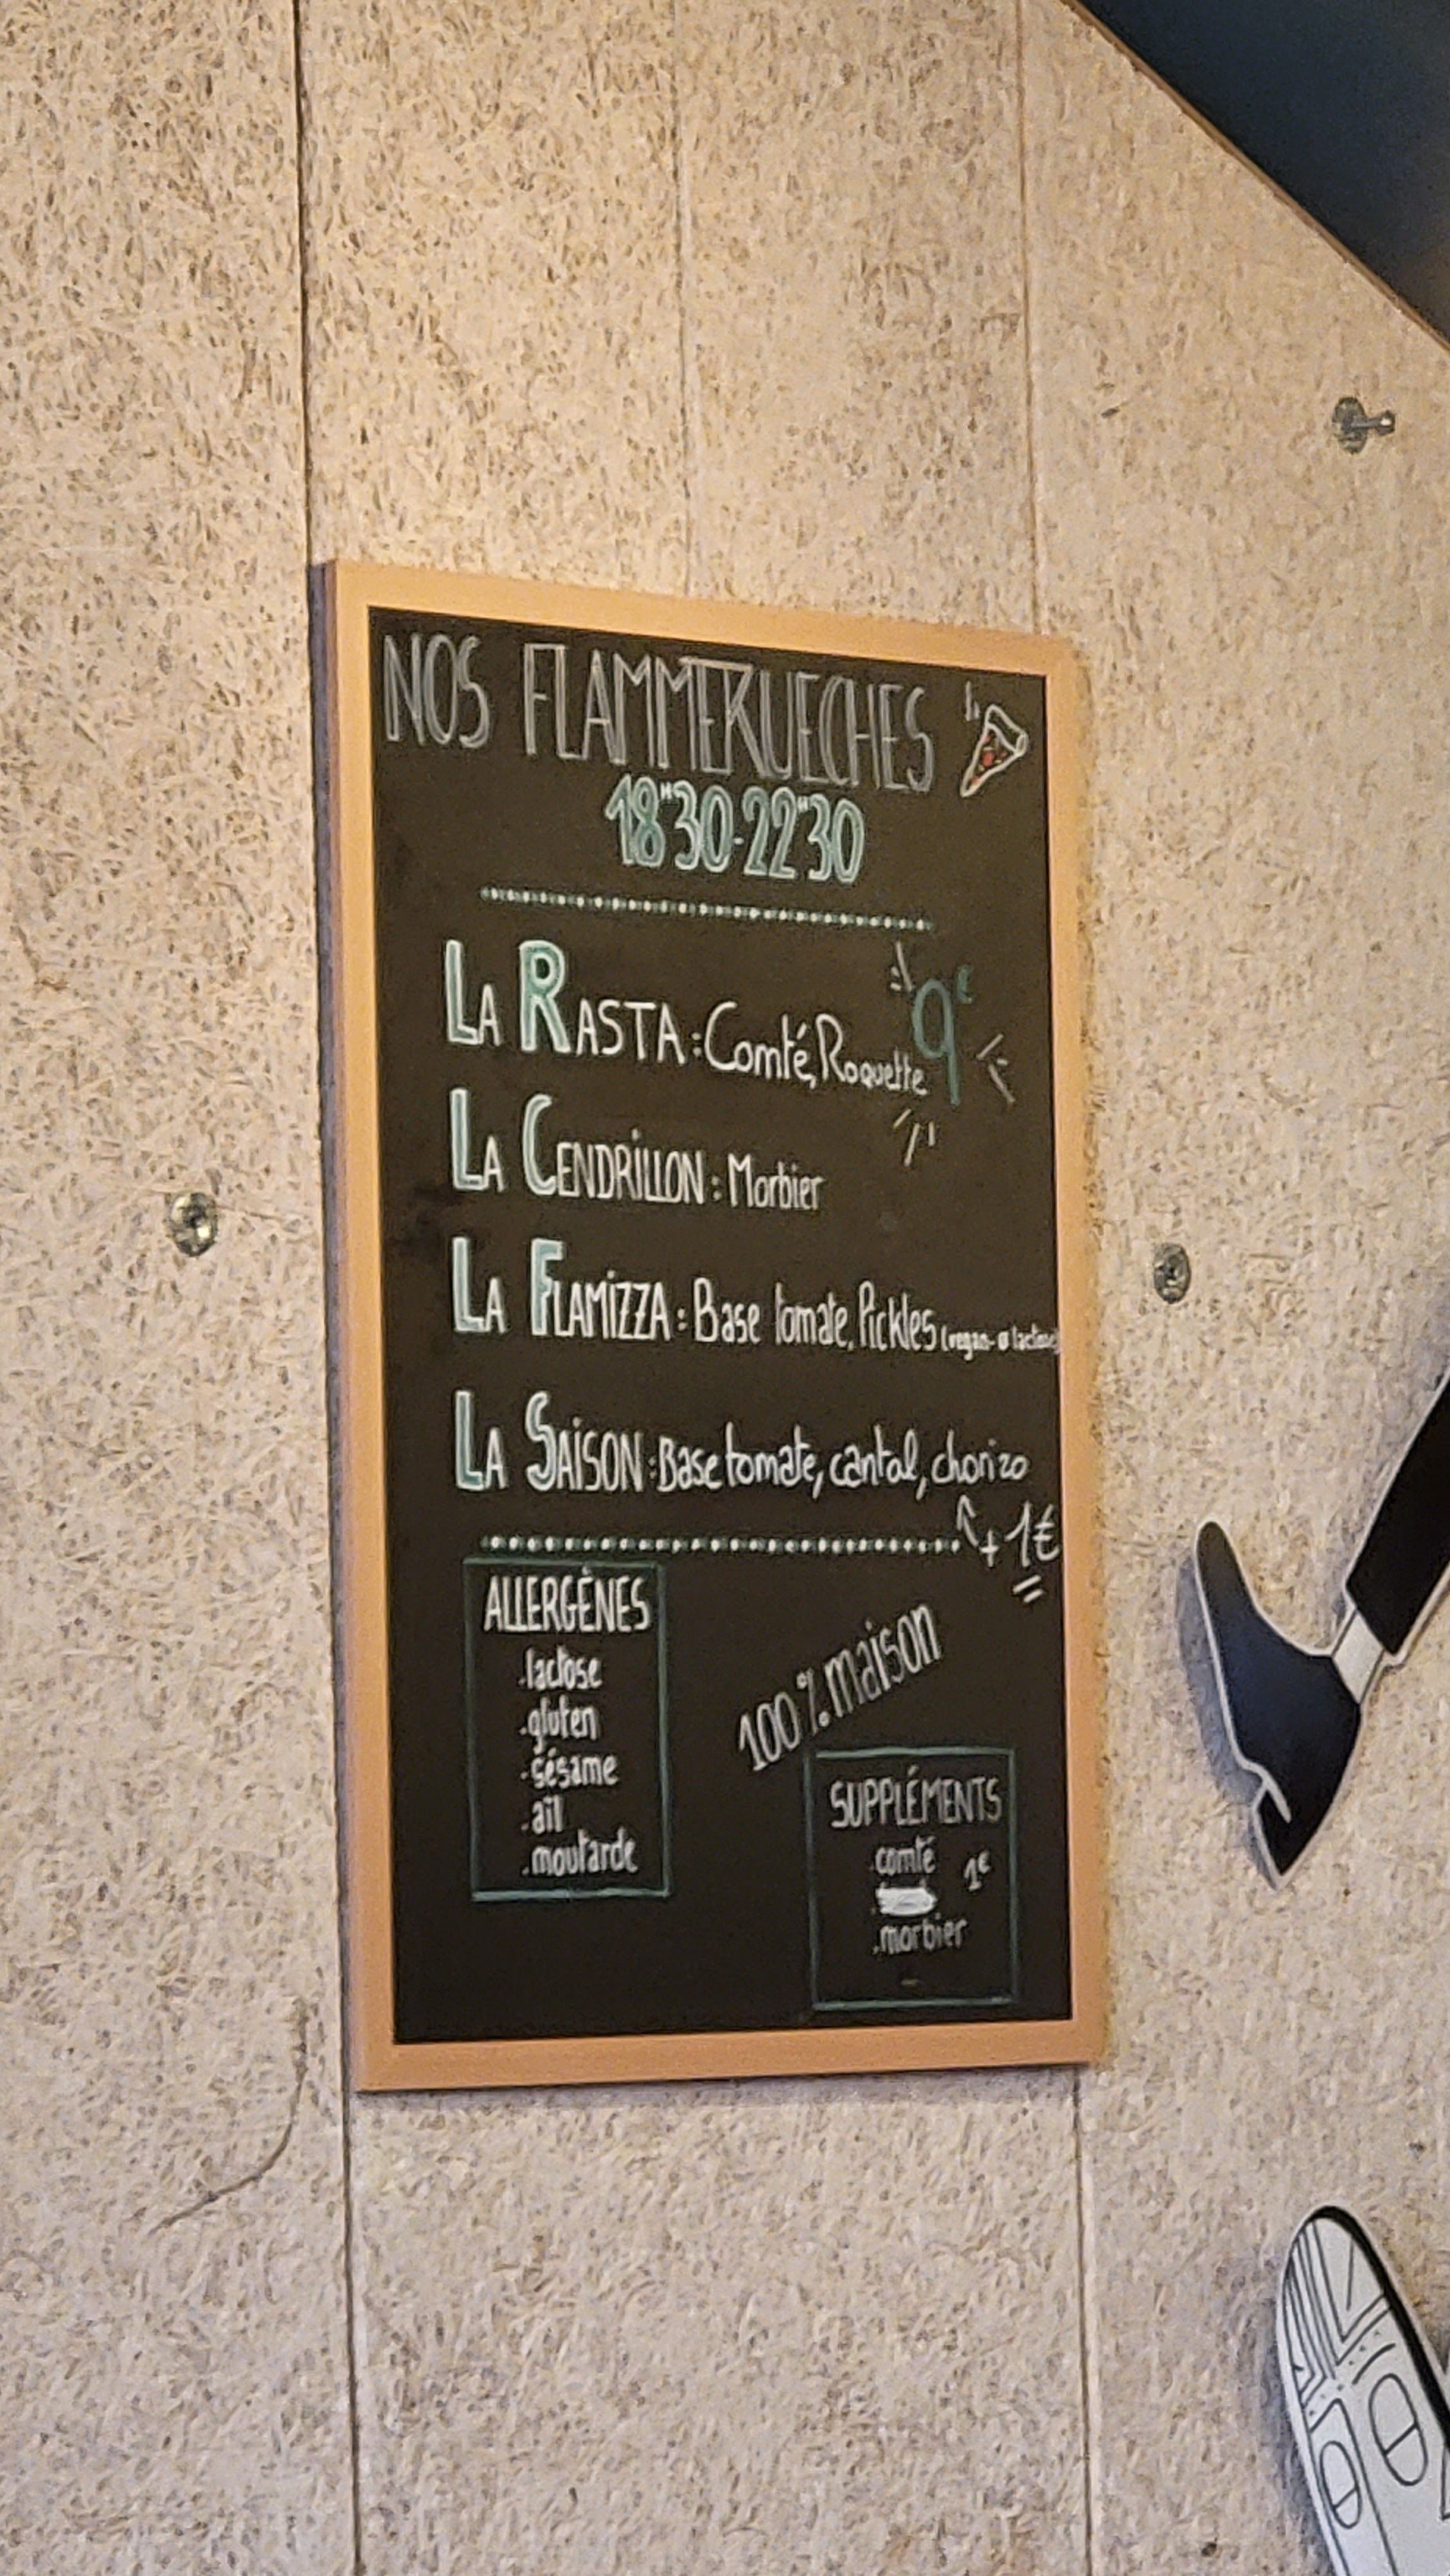 NOS FLAMMEKUECHES
18H30-22H30
LA RASTA : Comté, Roquette
9€
LA CENDRILLON : Morbier
LA FLAMIZZA : Base tomate, Pickles (vegan - ø lactose)
LA SAISON : Base tomate, cantal, chorizo
+ 1€
ALLERGÈNES
. lactose
. gluten
. sésame
. ail
. moutarde
100% maison
SUPPLÉMENTS
. comté 1€
. morbier